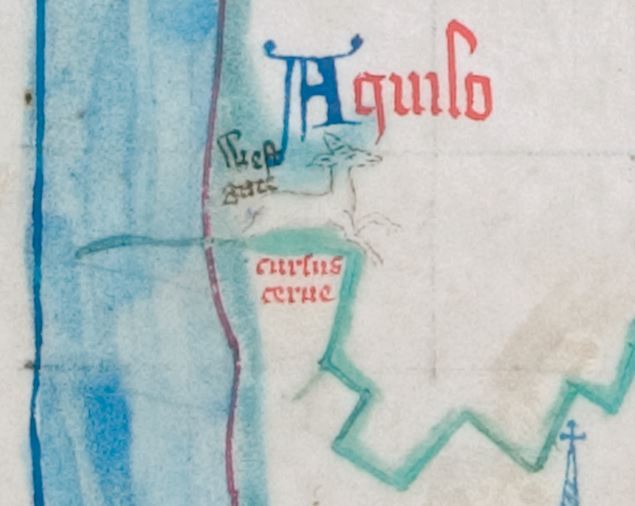 Aquilo
cursus
cerue